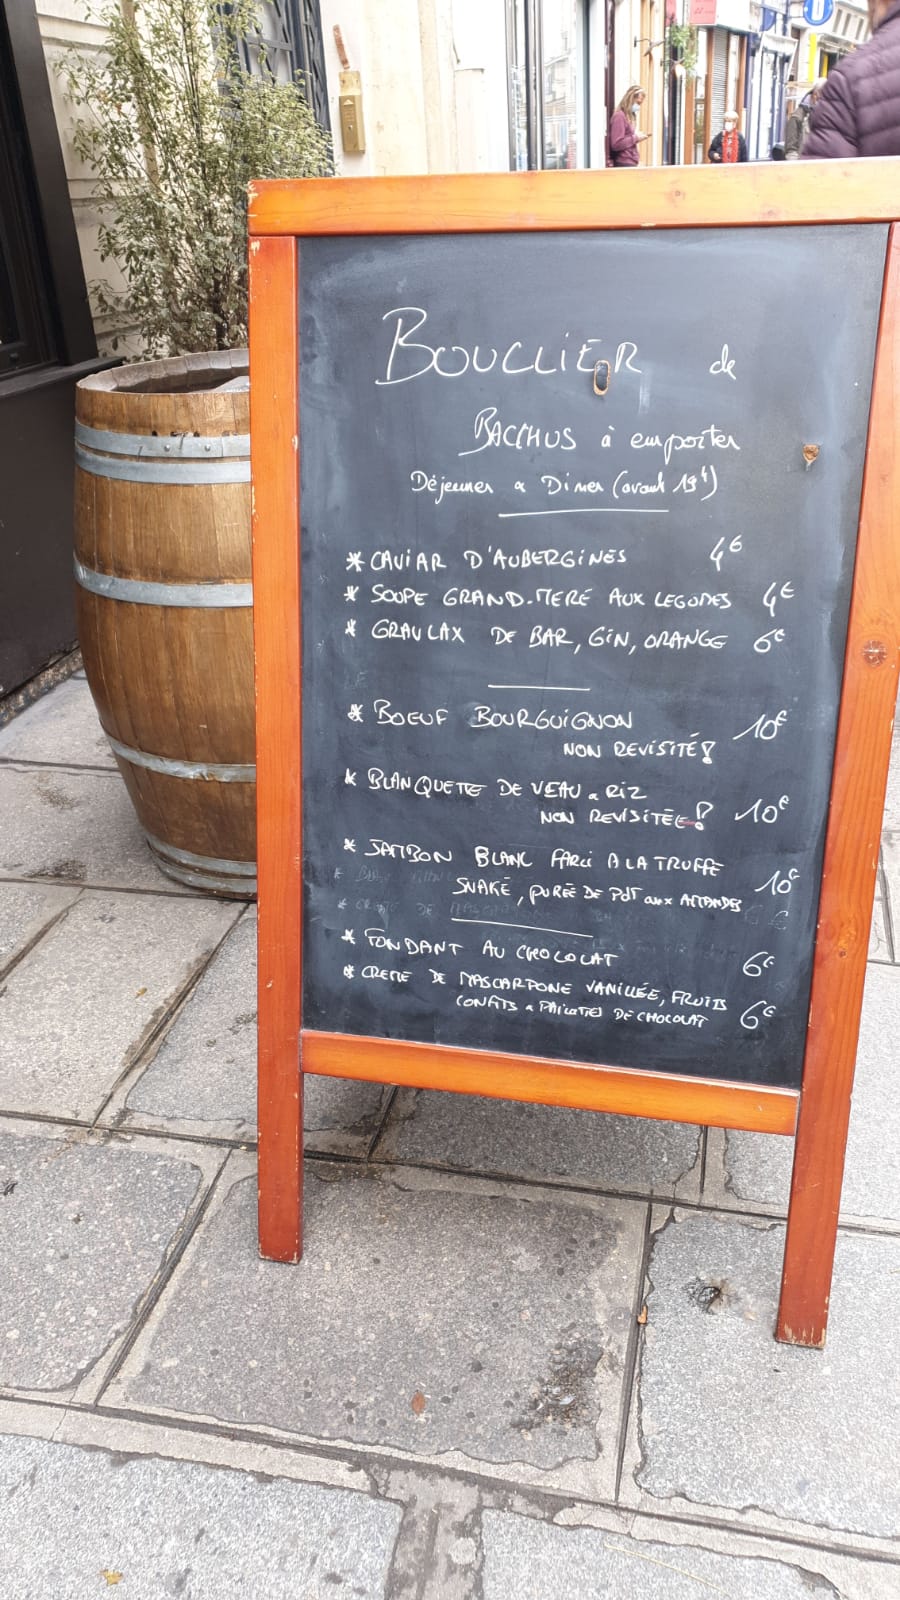 BOUCLIER de
BACCHUS à emporter
Déjeuner & Diner (avant 19h)
* CAVIAR D'AUBERGINES 4€
* SOUPE GRAND-MERE AUX LEGUMES 4€
* GRAVLAX DE BAR, GIN, ORANGE 6€
* BOEUF BOURGUIGNON 10€
NON REVISITÉ!
* BLANQUETTE DE VEAU & RIZ
NON REVISITÉE! 10€
* JAMBON BLANC FARCI A LA TRUFFE
SNAKÉ, PURÉE DE PDT aux AMANDES 10€
* FONDANT AU CHOCOLAT 6€
* CREME DE MASCARPONE VANILLÉE, FRUITS
CONFITS & PAILLETTES DE CHOCOLAT 6€